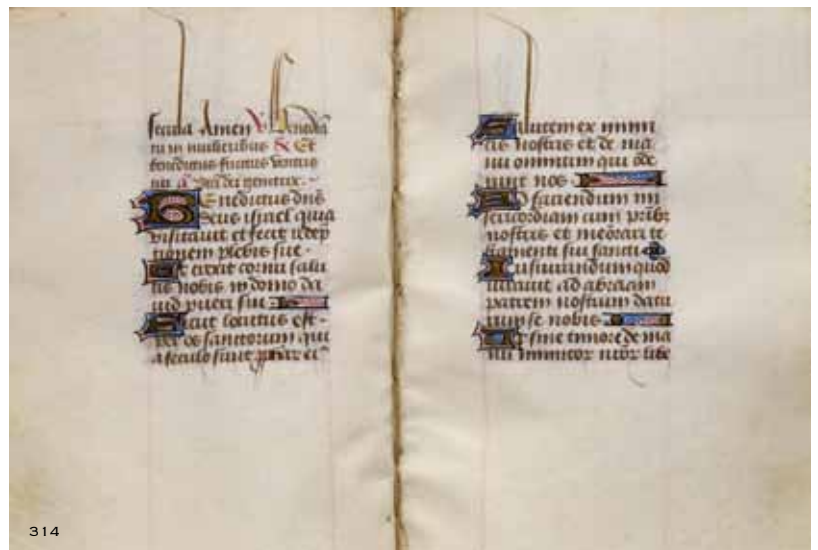 secula Amen V Benedicta
tu in mulieribus R Et
benedictus fructus ventris
tui a dei genitrix.
Benedictus dns
deus israel quia
visitavit et fecit redep
tionem plebis sue.
Et erexit cornu salu
tis nobis in domo da
vid pueri sui
Sicut locutus est
per os sanctorum qui
a seculo sunt prophetar ei
Salutem ex inimi
cis nostris et de ma
nu omnium qui ode
runt nos
Ad faciendum mi
sericordiam cum pribz
nostris et memorari te
stamenti sui sancti
Jusiurandum quod
iuravit ad abraam
patrem nostrum datu
rum se nobis
Ut sine timore de ma
nu inimicor nror libe
314